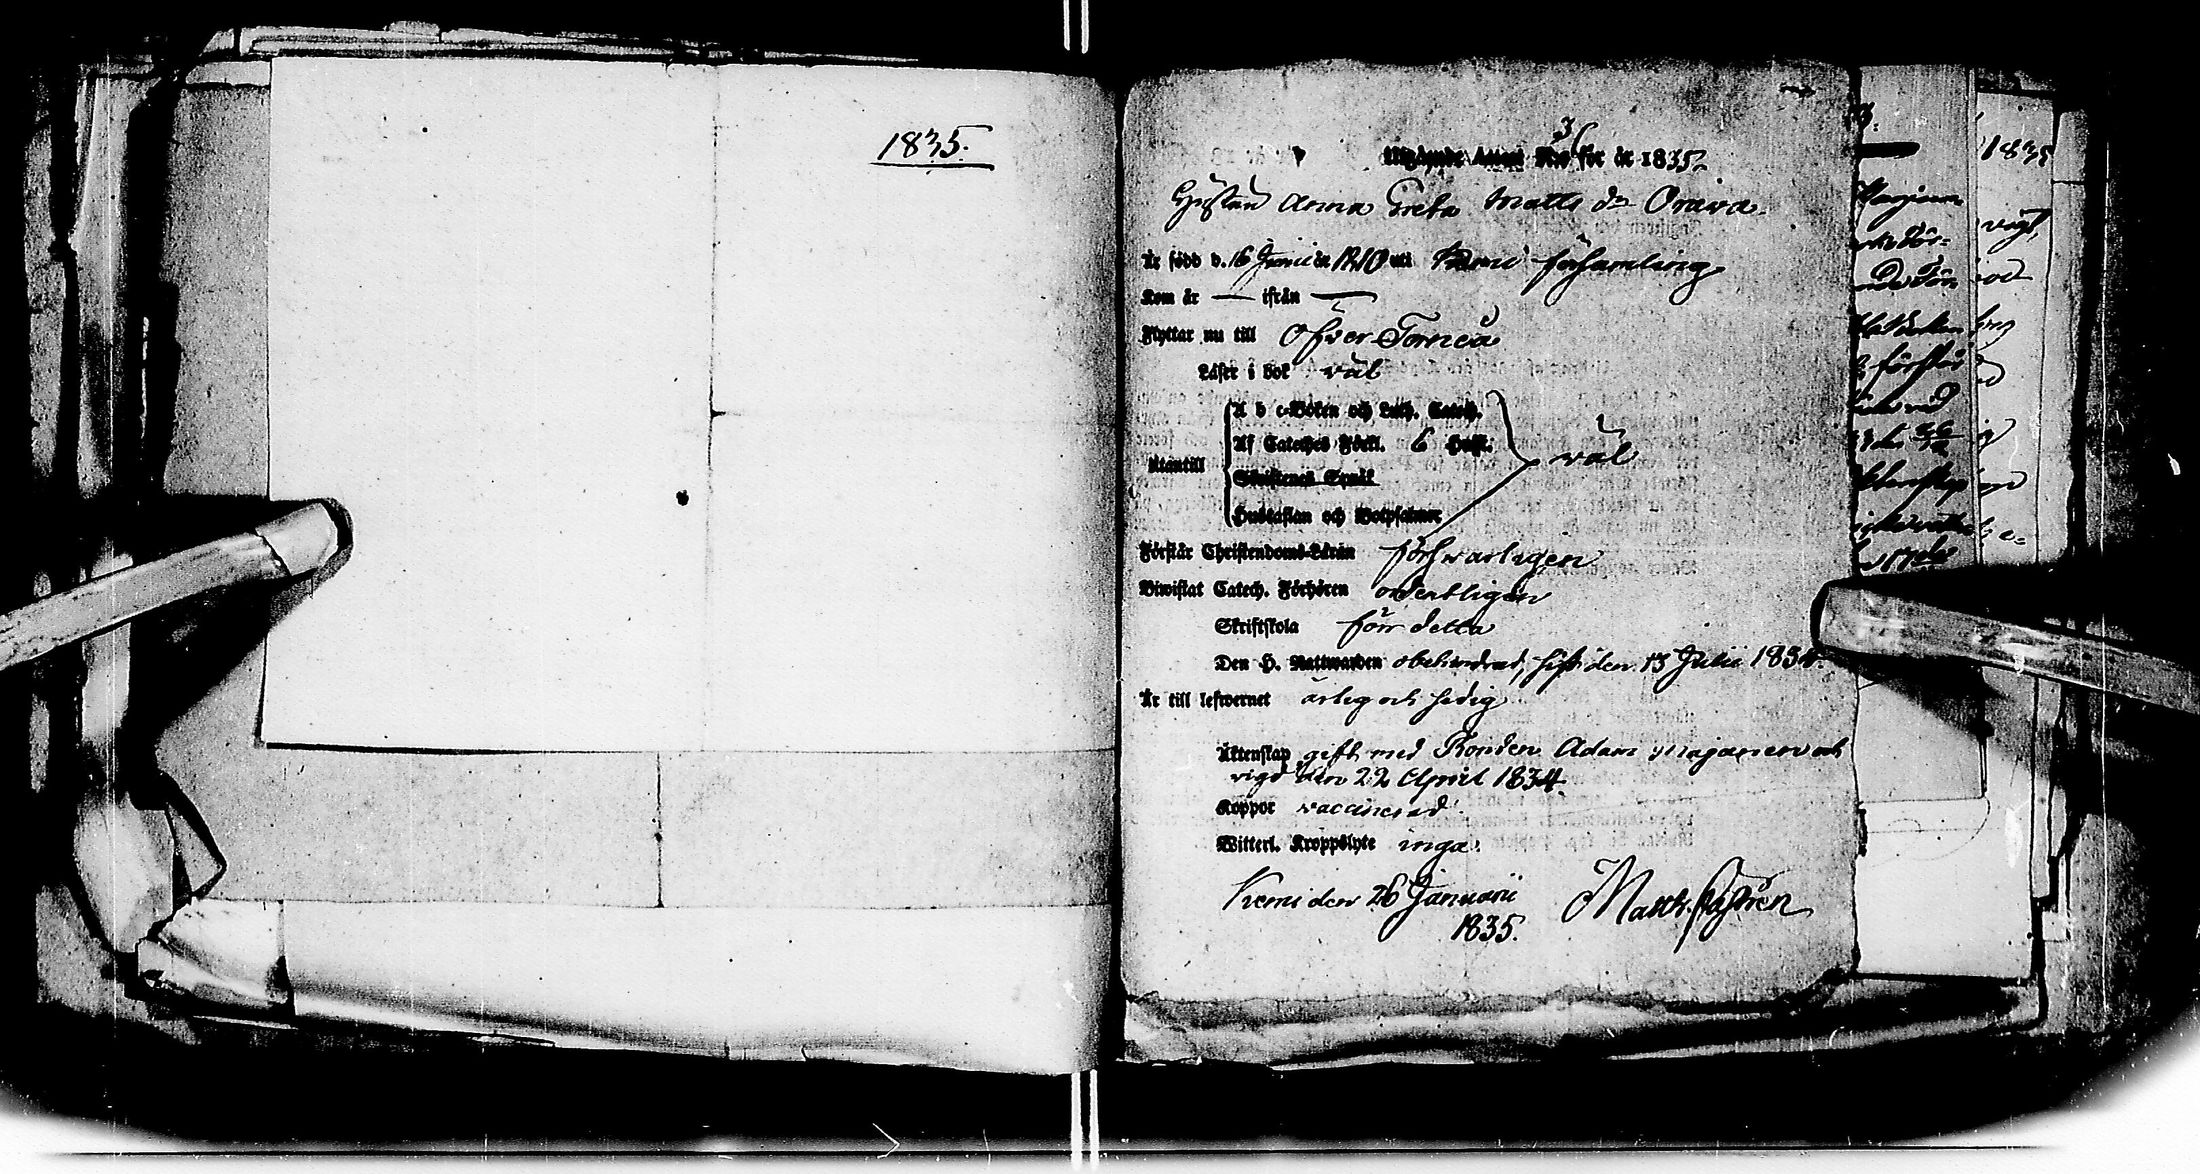 1835.
Utgående Attest N:o 3 för år 1835.
Hustrun Anna Greta Matts dr Oraiva.
Är född d. 16 Junii år 1810 uti Kemi församling
Kom år — ifrån —
Flyttar nu till Öfver Torneå
Läser i bok väl
A b c-Boken och Luth. Catech.
Af Cateches Förkl. 6 Huft.
Utantill
väl
Skriftenes Språk
Hustaflan och Botpsalmer
Förstår Christendoms-Läran försvarligen
Biwistat Catech. Förhören ordentligen
Skriftskola förr detta
Den H. Nattwarden obehindrad, sist den 13 Julii 1834.
Är till lefwernet ärlig och sedig
Äktenskap gift med Bonden Adam Majanen och
vigd den 22 April 1834.
Koppor vaccinerad
Witterl. Kroppslyte inga.
Kemi den 26 Januarii
1835.
Matth. Castrén
1835